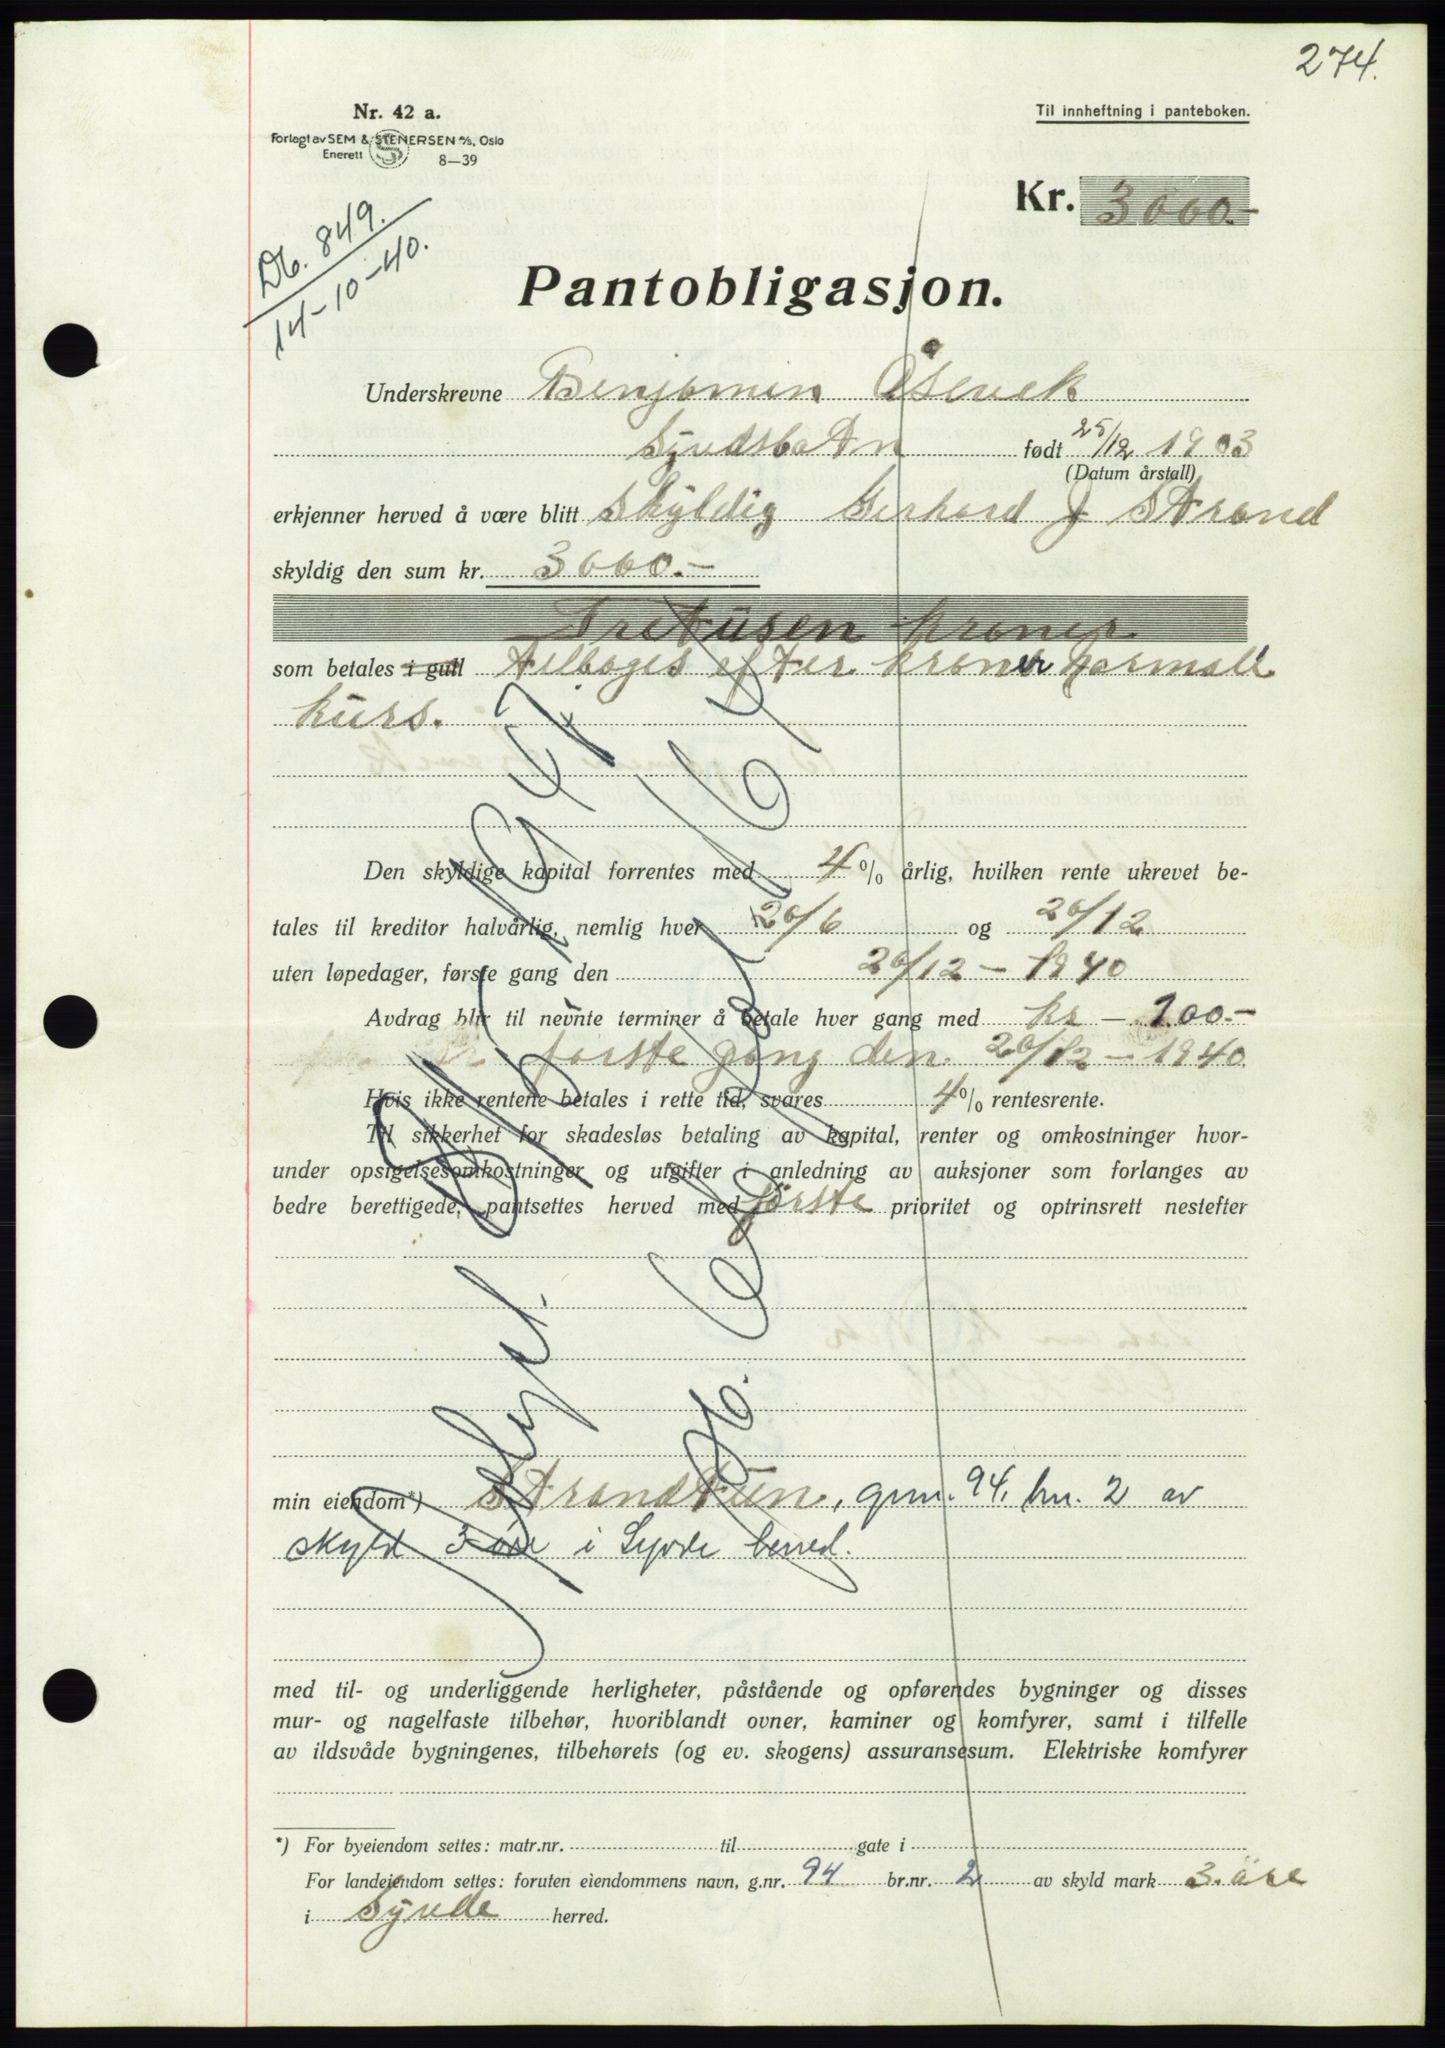 274.
Nr. 42 a.
Forlagt av SEM & STENERSEN A/S, Oslo
Enerett 8—39
Til innheftning i panteboken.
Kr. 3000.-
Db. 849.
14-10-40.
Pantobligasjon.
Underskrevne Benjamin Åsevek
Syvdsbotn født 25/12 1903
(Datum årstall)
erkjenner herved å være blitt Skyldig Gerhard J Strand
skyldig den sum kr. 3000.-
Tretusen kroner
som betales i gull Tilbages efter kroner normall
kurs.
Den skyldige kapital forrentes med 4 % årlig, hvilken rente ukrevet be-
tales til kreditor halvårlig, nemlig hver 26/6 og 26/12
uten løpedager, første gang den 26/12 - 1940
Avdrag blir til nevnte terminer å betale hver gang med kr - 100.-
første gang den 26/12 - 1940
Hvis ikke rentene betales i rette tid, svares 4 % rentesrente.
Til sikkerhet for skadesløs betaling av kapital, renter og omkostninger hvor-
under opsigelsesomkostninger og utgifter i anledning av auksjoner som forlanges av
bedre berettigede, pantsettes herved med første prioritet og optrinsrett nestefter
min eiendom*) Strandtun, gnr. 94, bnr. 2 av
skyld 3 øre i Syvde herred.
med til- og underliggende herligheter, påstående og opførendes bygninger og disses
mur- og nagelfaste tilbehør, hvoriblandt ovner, kaminer og komfyrer, samt i tilfelle
av ildsvåde bygningenes, tilbehørets (og ev. skogens) assuransesum. Elektriske komfyrer
*) For byeiendom settes: matr.nr. til gate i
For landeiendom settes: foruten eiendommens navn, g.nr. 94 br.nr. 2 av skyld mark 3 øre
i Syvde herred.